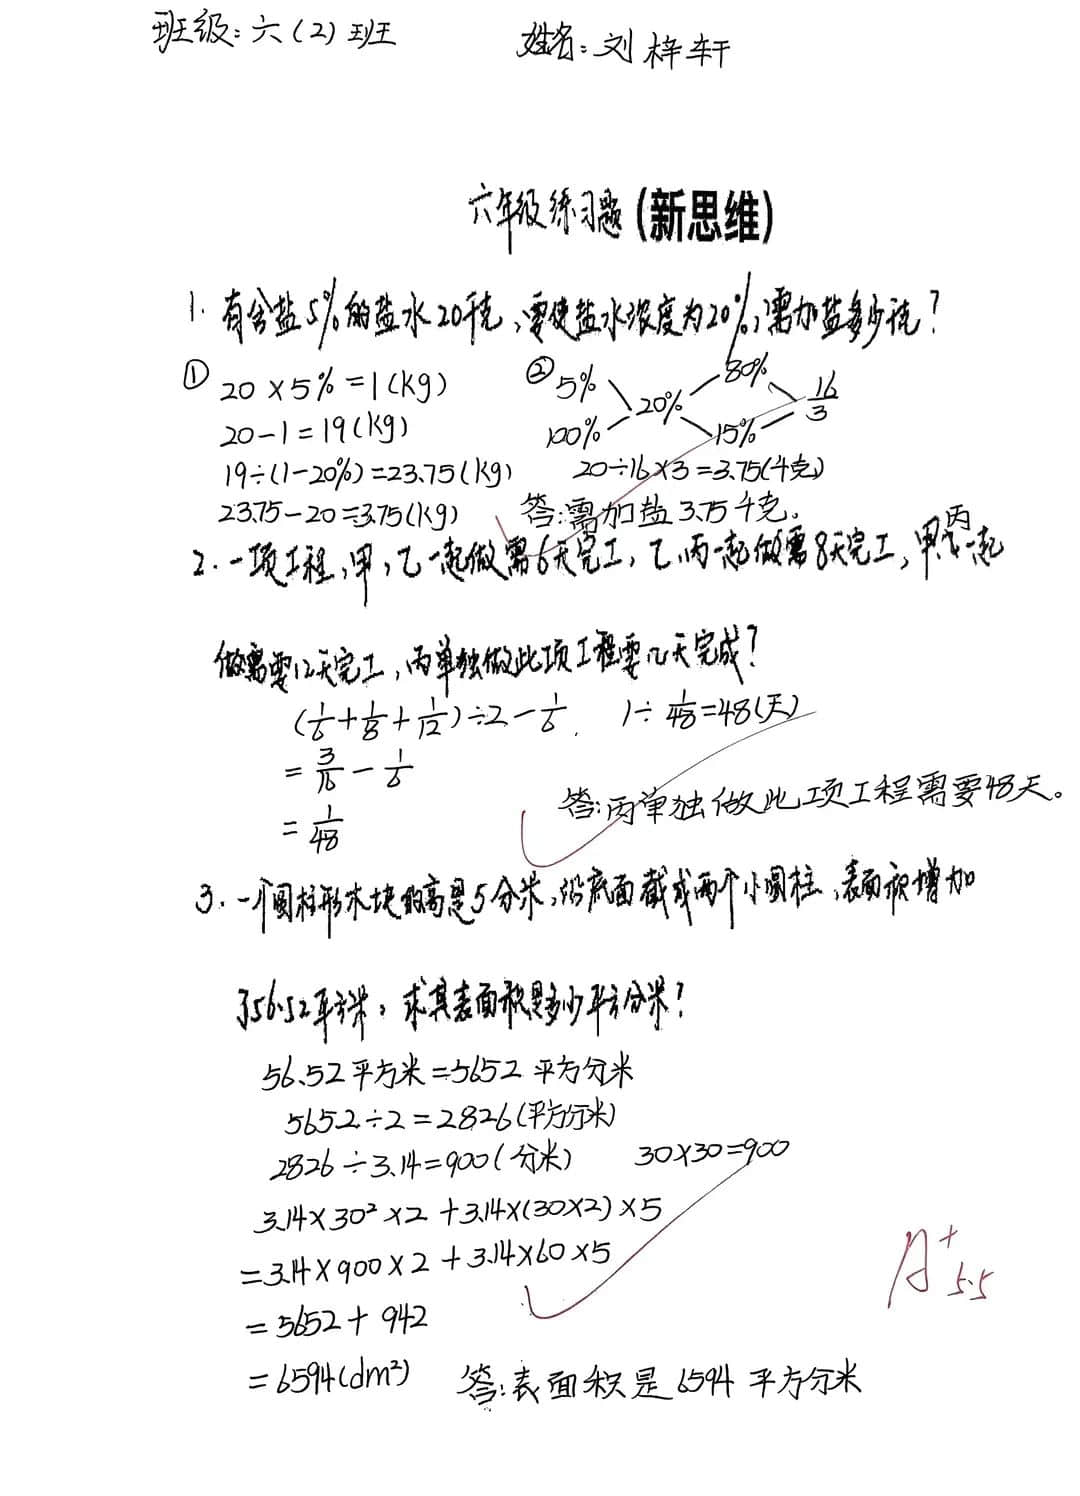 班级:六(2)班 姓名:刘梓轩
六年级练习题(新思维)
1.有含盐5%的盐水20千克,要使盐水浓度为20%,需加盐多少千克?
① 20×5%=1(kg)
20-1=19(kg)
19÷(1-20%)=23.75(kg)
23.75-20=3.75(kg)
② 5% 80% 16/3
20%
100% 15%
20÷16×3=3.75(千克)
答:需加盐3.75千克。
2.一项工程,甲,乙一起做需6天完工,乙,丙一起做需8天完工,甲丙一起
做需要12天完工,丙单独做此项工程要几天完成?
(1/6+1/8+1/12)÷2-1/6 1÷1/48=48(天)
=3/16-1/6
=1/48
答:丙单独做此项工程需要48天。
3.一个圆柱形木块的高是5分米,沿底面截成两个小圆柱,表面积增加
了56.52平方米,求其表面积是多少平方分米?
56.52平方米=5652平方分米
5652÷2=2826(平方分米)
2826÷3.14=900(分米) 30×30=900
3.14×30²×2+3.14×(30×2)×5
=3.14×900×2+3.14×60×5
=5652+942
=6594(dm²) 答:表面积是6594平方分米
A+
5.5